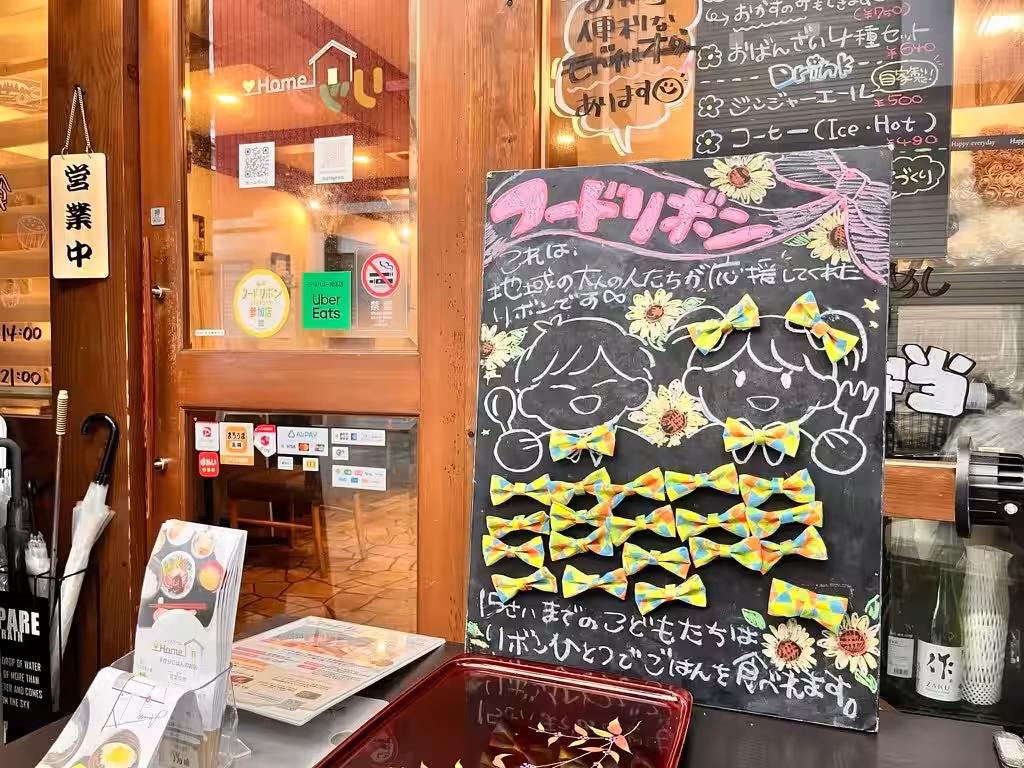 営業中
14:00
21:00
Home
ホームページ
Instagram
フードリボン
参加店
Uber
Eats
禁煙
AirPAY
d払い
便利な
モバイルオーダー
あります
おかずのみもできます
¥750
おばんざい4種セット
¥640
Drink
自家製!!
ジンジャーエール
¥500
コーヒー(Ice・Hot)
¥490
づくり
Happy everyday
フードリボン
これは、
地域の大人の人たちが応援してくれた
リボンです
15さいまでのこどもたちは
リボンひとつでごはんを食べれます。
弁当
作
ZAKU
Home